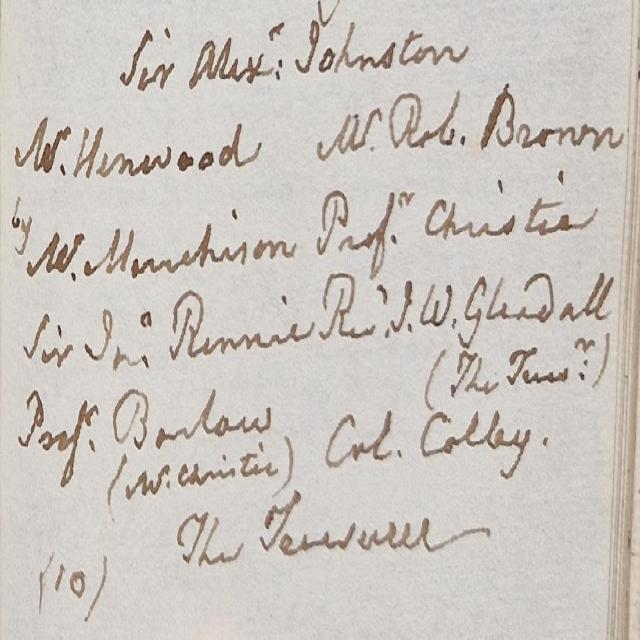 Sir Alex.r Johnston
Mr. Henwood Mr. Rob. Brown
by Mr. Murchison Prof.r Christie
Sir Jn.o Rennie Rev.d J. W. Gleadall
(The Treas.r)
Prof.r Barlow Col. Colby.
(Mr. Christie)
The Treasurer
(10)